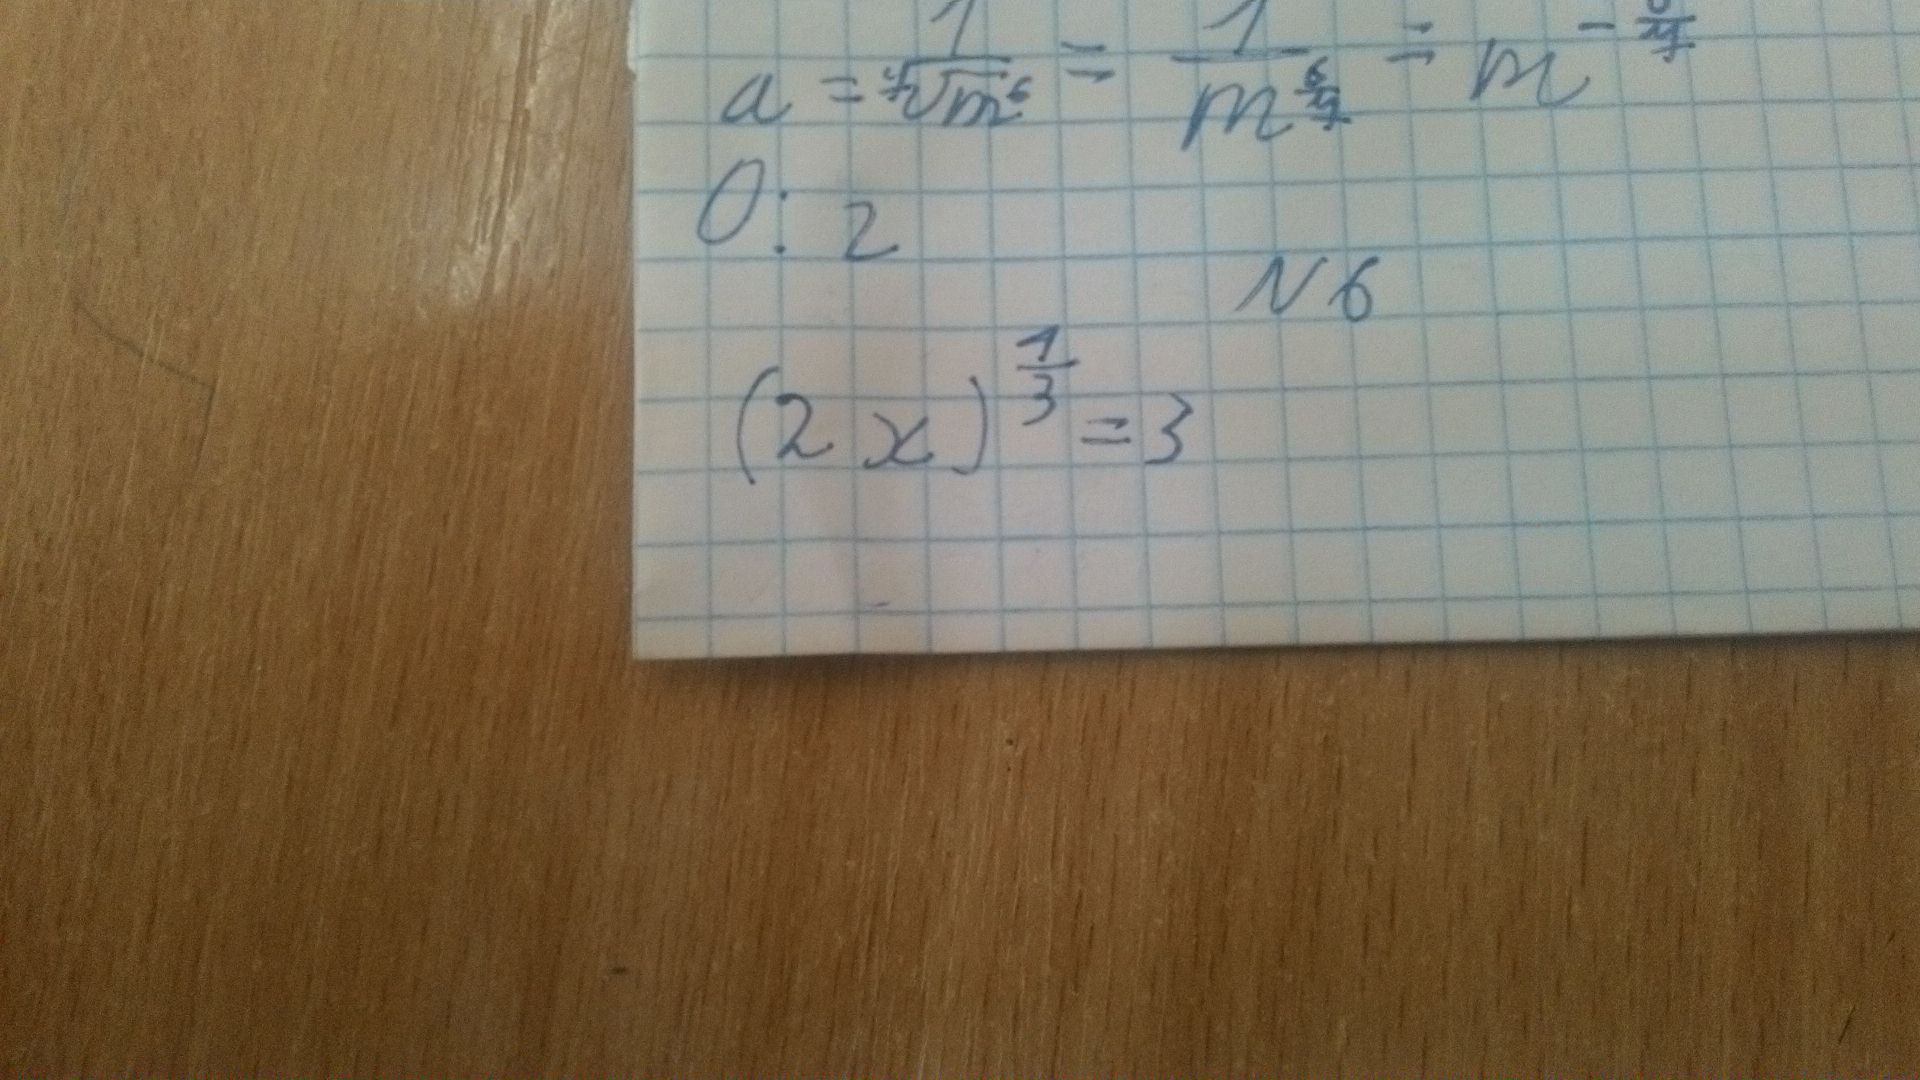 a = 1/⁷√m⁶ = 1/m^(6/7) = m^(-6/7)
O: 2
N 6
(2x)^(1/3) = 3